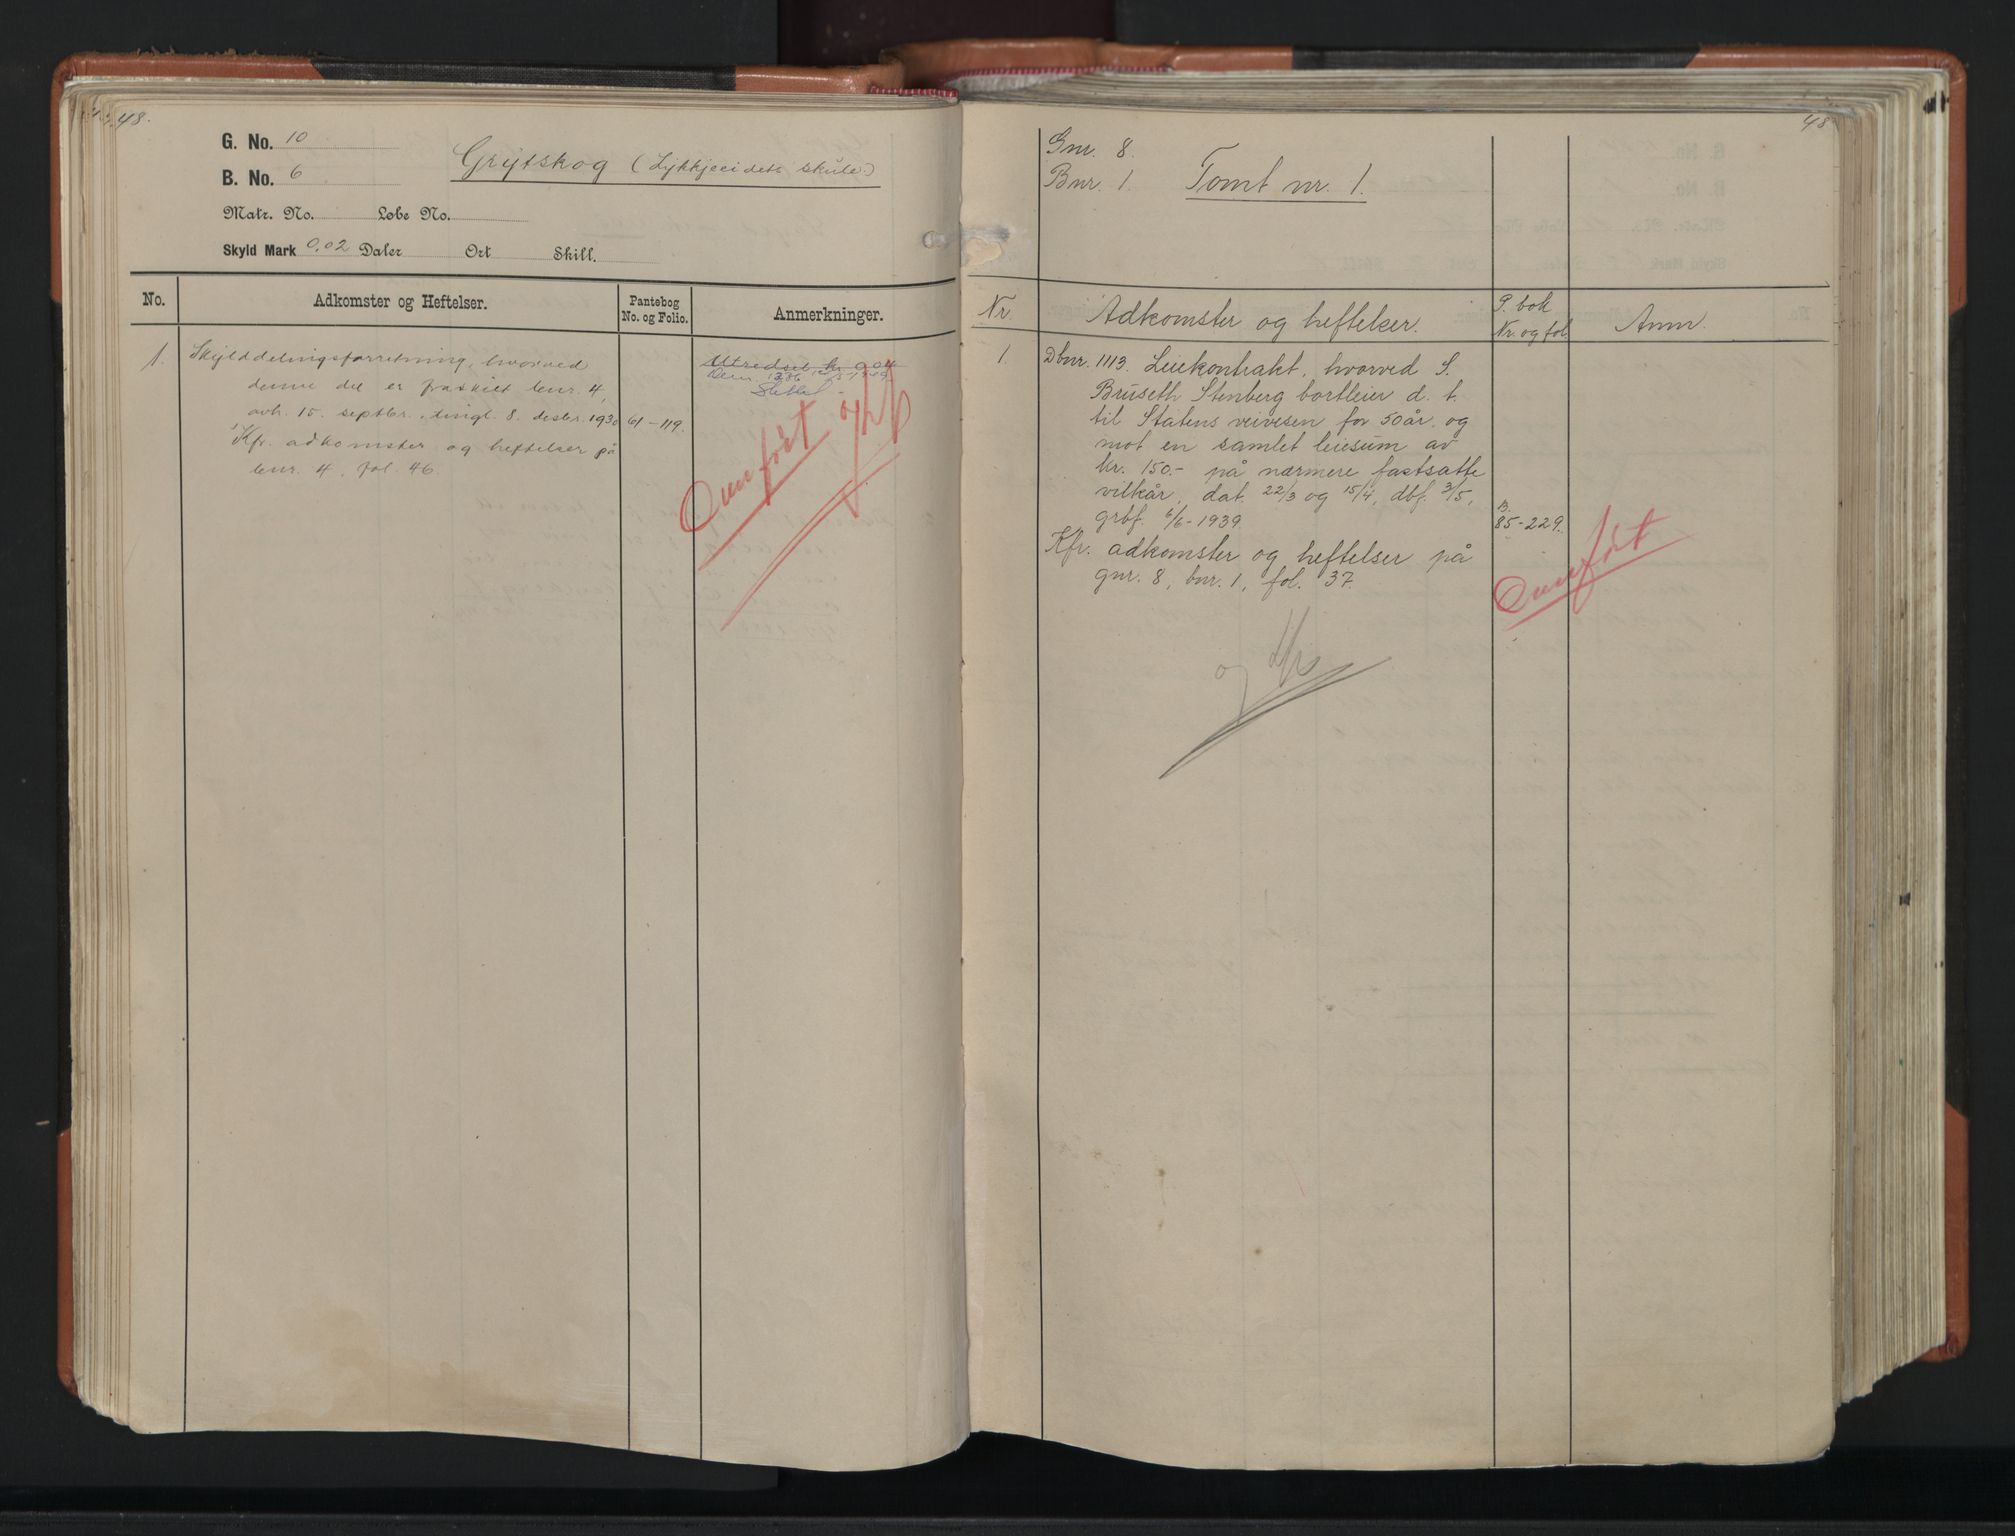 48.
G. No. 10
B. No. 6
Grytskog (Lykkjeeidets skule.)
Matr. No. Løbe No.
Skyld Mark 0,02 Daler Ort Skill.
No. Adkomster og Heftelser. Pantebog No. og Folio. Anmerkninger.
1. Skylddelingsforretning, hvorved
denne del er fraskilt bnr. 4,
avh. 15. septbr., tingl. 8. desbr. 1930 61-119.
Kfr. adkomster og heftelser på
bnr. 4, fol. 46.
Slettet
Overført og
48
Gnr. 8.
Bnr. 1. Tomt nr. 1.
Nr. Adkomster og heftelser. P. bok Nr. og fol. Anm.
1. Dbnr. 1113. Leiekontrakt, hvorved S.
Bruseth Stenberg bortleier d. t.
til Statens veivesen for 50 år og
mot en samlet leiesum av
kr. 150.- på nærmere fastsatte
vilkår, dat. 22/3 og 15/4, dbf. 3/5,
grbf. 6/6-1939. B. 85-229.
Kfr. adkomster og heftelser på
gnr. 8, bnr. 1, fol. 37.
Overført
og